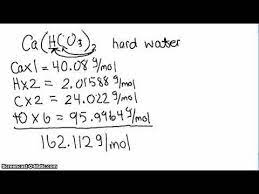 Ca(HCO₃)₂ hard water
Ca×1 = 40.08 g/mol
H×2 = 2.01588 g/mol
C×2 = 24.022 g/mol
O × 6 = 95.9964 g/mol
162.1129 g/mol
Screencast-O-Matic.com